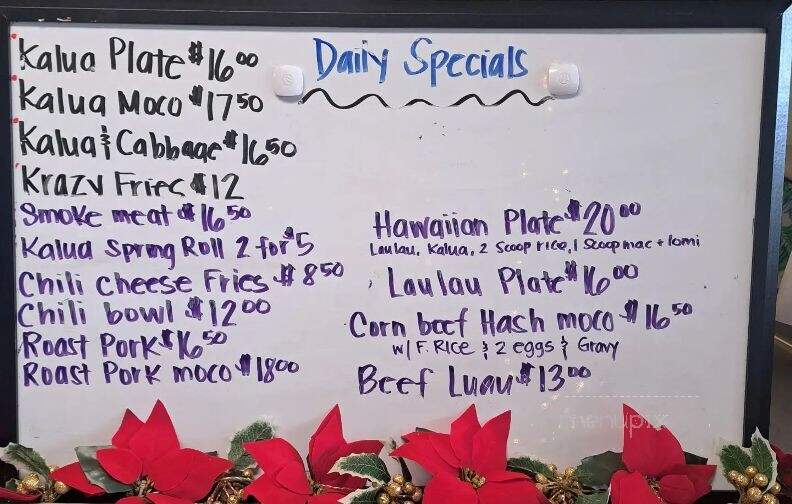 Daily Specials
Kalua Plate $16.00
Kalua Moco $17.50
Kalua & Cabbage $16.50
Krazy Fries $12
Smoke meat $16.50
Kalua Spring Roll 2 for $5
Chili cheese Fries $8.50
Chili bowl $12.00
Roast Pork $16.50
Roast Pork moco $18.00
Hawaiian Plate $20.00
Laulau, Kalua, 2 Scoop rice, 1 Scoop mac + lomi
Laulau Plate $16.00
Corn beef Hash moco $16.50
w/ F. Rice & 2 eggs & Gravy
Beef Luau $13.00
menupix